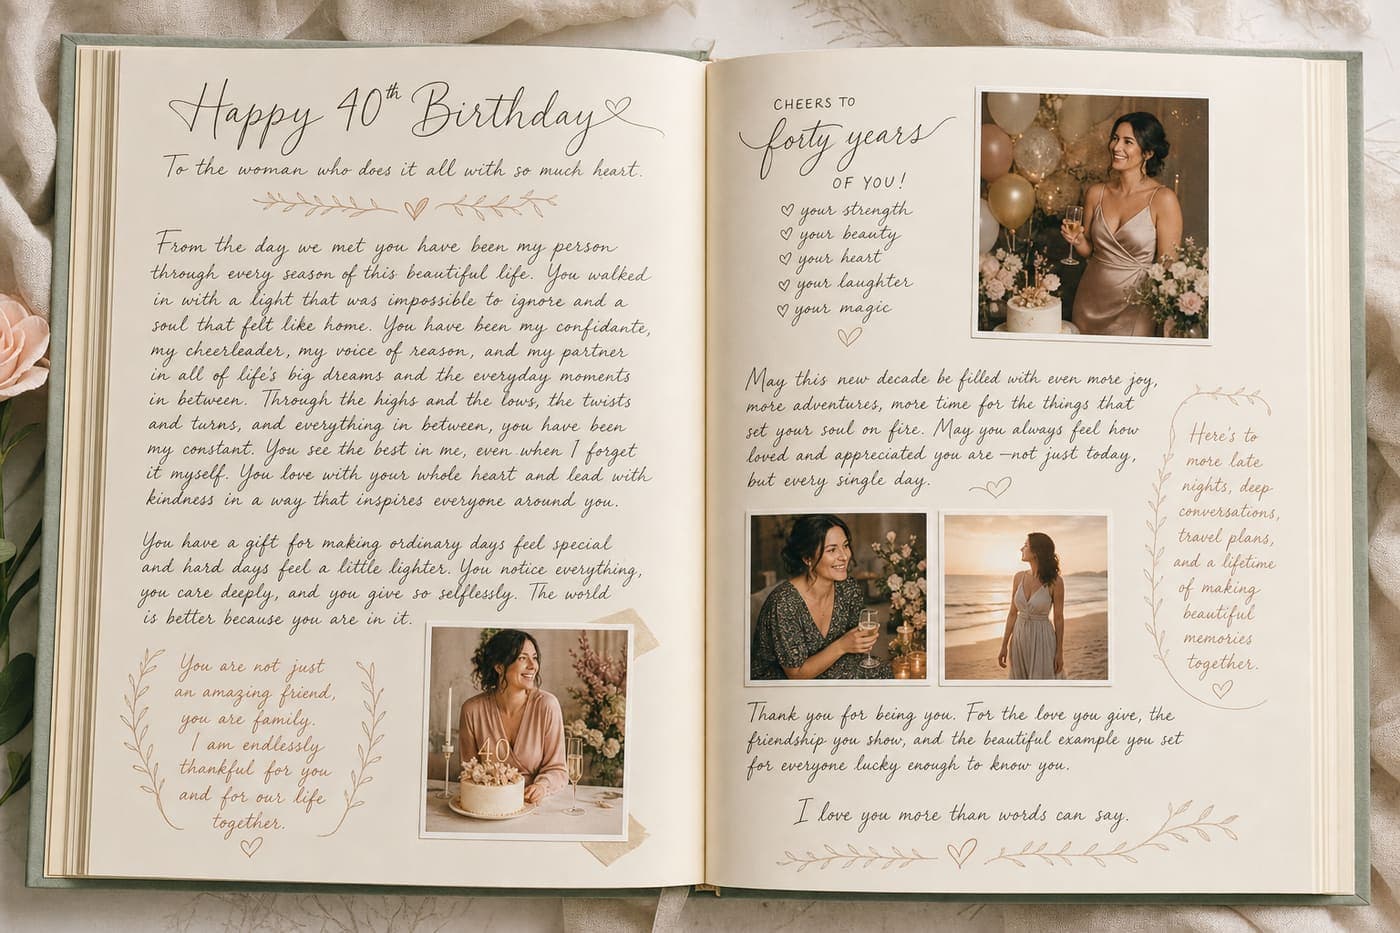 Happy 40th Birthday
To the woman who does it all with so much heart.
From the day we met you have been my person
through every season of this beautiful life. You walked
in with a light that was impossible to ignore and a
soul that felt like home. You have been my confidante,
my cheerleader, my voice of reason, and my partner
in all of life's big dreams and the everyday moments
in between. Through the highs and the lows, the twists
and turns, and everything in between, you have been
my constant. You see the best in me, even when I forget
it myself. You love with your whole heart and lead with
kindness in a way that inspires everyone around you.
You have a gift for making ordinary days feel special
and hard days feel a little lighter. You notice everything,
you care deeply, and you give so selflessly. The world
is better because you are in it.
You are not just
an amazing friend,
you are family.
I am endlessly
thankful for you
and for our life
together.
40
CHEERS TO
forty years
OF YOU!
your strength
your beauty
your heart
your laughter
your magic
May this new decade be filled with even more joy,
more adventures, more time for the things that
set your soul on fire. May you always feel how
loved and appreciated you are—not just today,
but every single day.
Here's to
more late
nights, deep
conversations,
travel plans,
and a lifetime
of making
beautiful
memories
together.
Thank you for being you. For the love you give, the
friendship you show, and the beautiful example you set
for everyone lucky enough to know you.
I love you more than words can say.